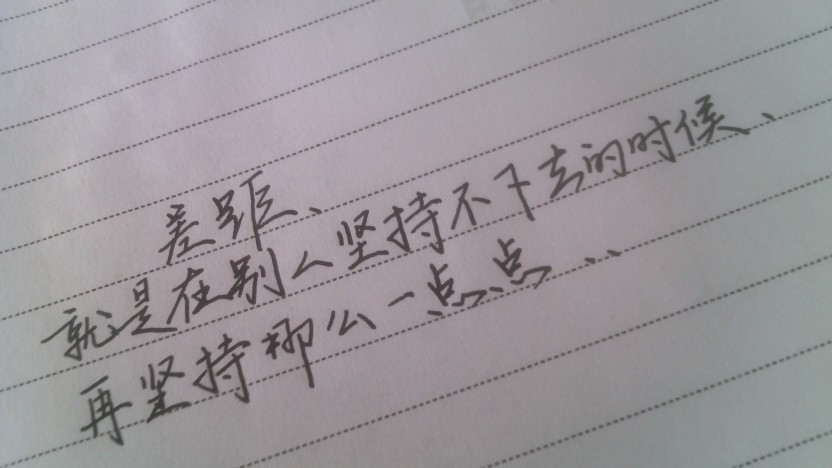 差距、
就是在别人坚持不下去的时候、
再坚持那么一点点..